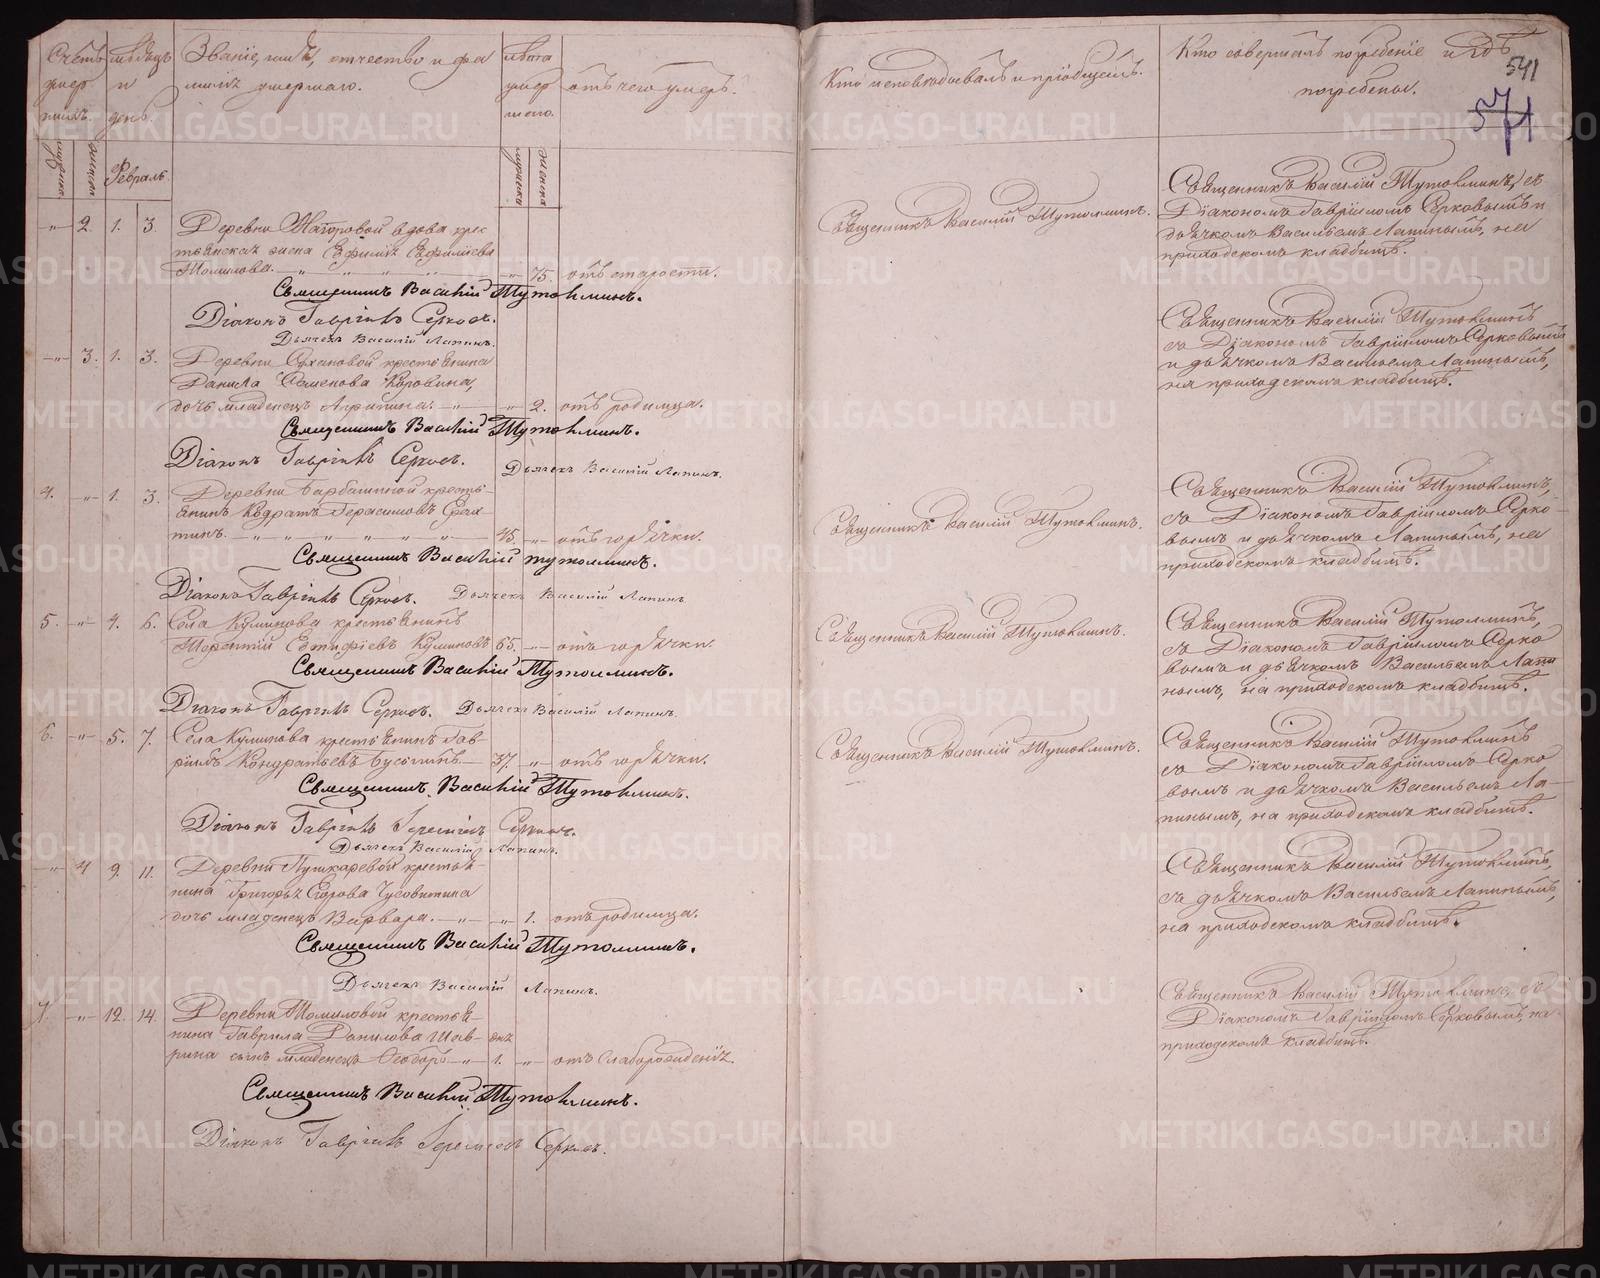 Счетъ умер шихъ.
мѣсяцъ и день.
Званіе, имя, отчество и фа
милія умершаго.
лѣта умер шаго.
отъ чего умеръ.
Кто исповѣдовалъ и пріобщалъ.
Кто совершалъ погребеніе и гдѣ
погребены.
541
571
мужска
женска
Февраль.
мужска
женска
-"- 2. 1. 3. Деревни вдова крес
тьянская жена Ефимія
Томилова. -"- 75. отъ старости.
Священникъ Василій Тутолминъ.
Діаконъ Гавріилъ Серковъ.
Дьячекъ Василій Лапинъ.
Священникъ Василій Тутолминъ.
Священникъ Василій Тутолминъ, съ
Діакономъ Гавріиломъ Серковымъ и
дьячкомъ Васильемъ Лапинымъ, на
приходскомъ кладбищѣ.
-"- 3. 1. 3. Деревни крестьянина
Данила Семенова
дочь младенецъ Агрипина. -"- -"- 2. отъ родимца.
Священникъ Василій Тутолминъ.
Діаконъ Гавріилъ Серковъ.
Дьячекъ Василій Лапинъ.
Священникъ Василій Тутолминъ
съ Діакономъ Гавріиломъ Серковымъ
и дьячкомъ Васильемъ Лапинымъ,
на приходскомъ кладбищѣ.
4. -"- 1. 3. Деревни кресть
янинъ Кодратъ Герасимовъ
тинъ. -"- 45. -"- отъ горячки.
Священникъ Василій Тутолминъ.
Діаконъ Гавріилъ Серковъ. Дьячекъ Василій Лапинъ
Священникъ Василій Тутолминъ.
Священникъ Василій Тутолминъ,
съ Діакономъ Гавріиломъ Серко
вымъ и дьячкомъ Лапинымъ, на
приходскомъ кладбищѣ.
5. -"- 4. 6. Села Куминова крестьянинъ
Куминовъ 65. -"- отъ горячки.
Священникъ Василій Тутолминъ.
Діаконъ Гавріилъ Серковъ. Дьячекъ Василій Лапинъ.
Священникъ Василій Тутолминъ.
Священникъ Василій Тутолминъ,
съ Діакономъ Гавріиломъ Серко
вымъ и дьячкомъ Васильемъ Лапи
нымъ, на приходскомъ кладбищѣ.
6. -"- 5. 7. Села Куминова крестьянинъ Гав-
рилъ Кондратьевъ 37 -"- отъ горячки.
Священникъ Василій Тутолминъ.
Діаконъ Гавріилъ Серковъ.
Дьячекъ Василій Лапинъ.
Священникъ Василій Тутолминъ.
Священникъ Василій Тутолминъ
съ Діакономъ Гавріиломъ Серко
вымъ и дьячкомъ Васильемъ Ла-
пинымъ, на приходскомъ кладбищѣ.
-"- 4 9. 11. Деревни Пушкаревой крестья-
нина Григорья Егорова Чусовитина
дочь младенецъ Варвара. -"- -"- 1. отъ родимца.
Священникъ Василій Тутолминъ.
Дьячекъ Василій Лапинъ.
Священникъ Василій Тутолминъ,
съ дьячкомъ Васильемъ Лапинымъ,
на приходскомъ кладбищѣ.
7. -"- 12. 14. Деревни Томиловой крестья-
нина Гаврила Данилова Шав- дня
рина сынъ младенецъ Ѳеодоръ -"- 1. -"- отъ слаборожденія.
Священникъ Василій Тутолминъ.
Діаконъ Гавріилъ Серковъ.
Священникъ Василій Тутолминъ, съ
Діакономъ Гавріиломъ Серковымъ, на
приходскомъ кладбищѣ.
METRIKI.GASO-URAL.RU